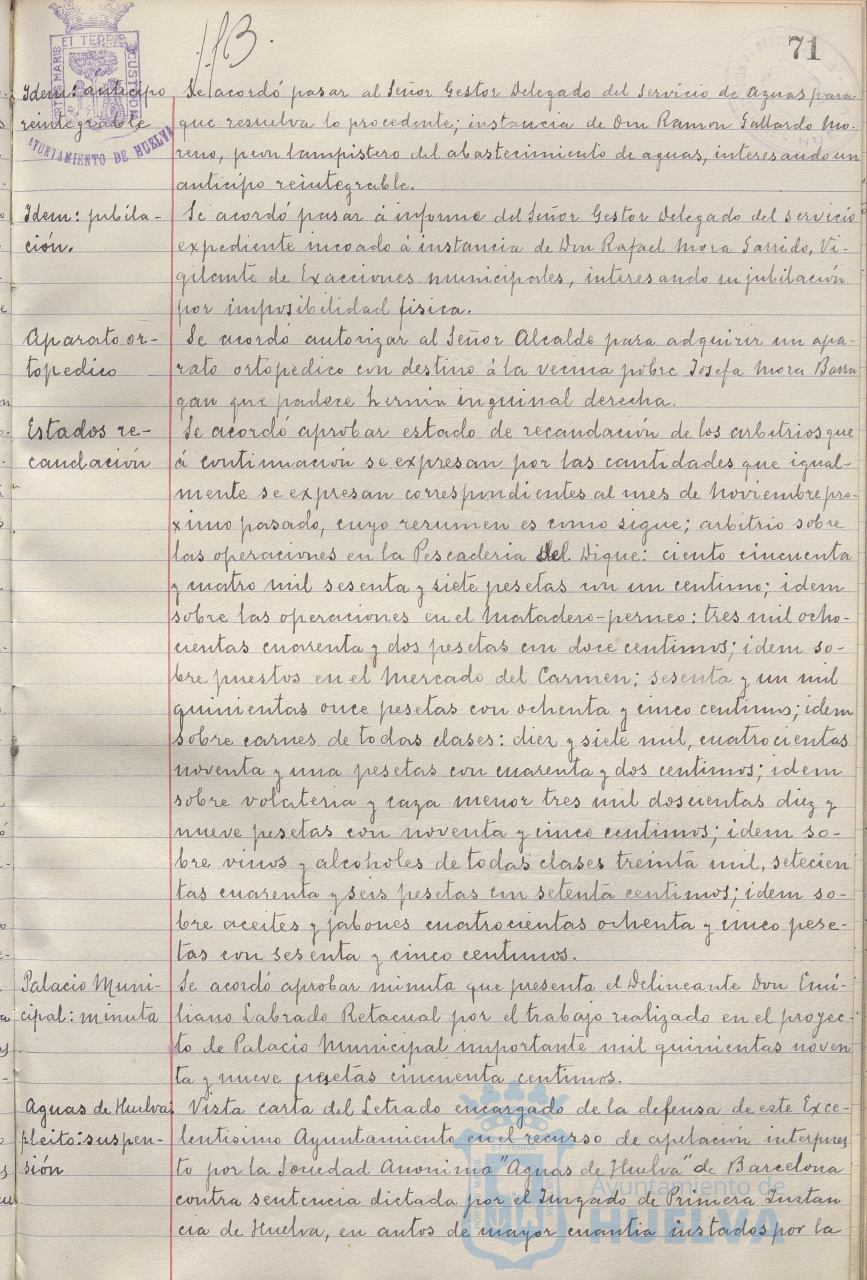 113.
71
PORTUS MARIS ET TERRAE CUSTODIA
AYUNTAMIENTO DE HUELVA
Idem: anticipo
reintegrable
Se acordó pasar al Señor Gestor Delegado del Servicio de aguas para
que resuelva lo procedente; instancia de Don Ramon Gallardo Mo-
reno, peon lampistero del abastecimiento de aguas, interesando un
anticipo reintegrable.
Idem: jubila-
ción.
Se acordó pasar á informe del Señor Gestor Delegado del servicio
expediente incoado á instancia de Don Rafael Mora Garrido, Vi-
gilante de Exacciones municipales, interesando su jubilación
por imposibilidad fisica.
Aparato or-
topedico
Se acordó autorizar al Señor Alcalde para adquirir un apa-
rato ortopedico con destino á la vecina pobre Josefa Mora Barra
gan que padece hernia inguinal derecha.
Estados re-
caudación
Se acordó aprobar estado de recaudación de los arbitrios que
á continuación se expresan por las cantidades que igual-
mente se expresan correspondientes al mes de Noviembre pro-
ximo pasado, cuyo resumen es como sigue; arbitrio sobre
las operaciones en la Pescaderia del Dique: ciento cincuenta
y cuatro mil sesenta y siete pesetas con un centimo; idem
sobre las operaciones en el Matadero-perneo: tres mil ocho-
cientas cuarenta y dos pesetas con doce centimos; idem so-
bre puestos en el Mercado del Carmen: sesenta y un mil
quinientas once pesetas con ochenta y cinco centimos; idem
sobre carnes de todas clases: diez y siete mil, cuatrocientas
noventa y una pesetas con cuarenta y dos centimos; idem
sobre volateria y caza menor tres mil doscientas diez y
nueve pesetas con noventa y cinco centimos; idem so-
bre vinos y alcoholes de todas clases treinta mil, setecien
tas cuarenta y seis pesetas con setenta centimos; idem so-
bre aceites y jabones cuatrocientas ochenta y cinco pese-
tas con sesenta y cinco centimos.
Palacio Muni-
cipal: minuta
Se acordó aprobar minuta que presenta el Delineante Don Emi-
liano Labrado Retacual por el trabajo realizado en el proyec-
to de Palacio Municipal importante mil quinientas noven
ta y nueve pesetas cincuenta centimos.
Aguas de Huelva:
pleito: suspen-
sión
Vista carta del Letrado encargado de la defensa de este Exce-
lentisimo Ayuntamiento en el recurso de apelación interpues
to por la Sociedad Anonima "Aguas de Huelva" de Barcelona
contra sentencia dictada por el Juzgado de Primera Instan
cia de Huelva, en autos de mayor cuantia instados por la
Ayuntamiento de
HUELVA